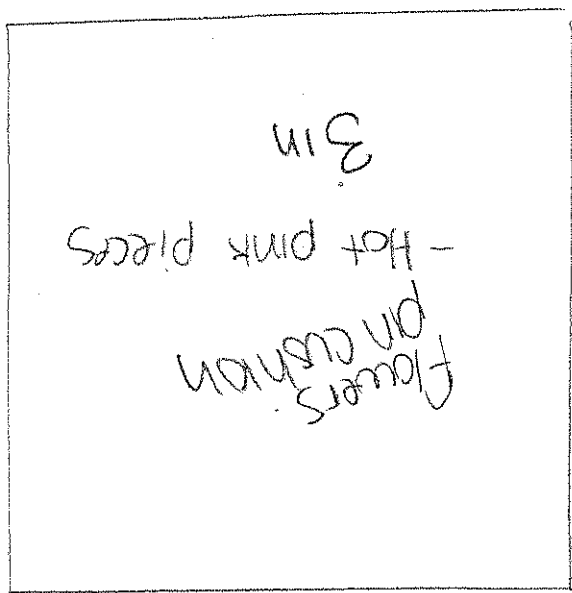 Flowers
pin cushion
- Hot pink pieces
3in